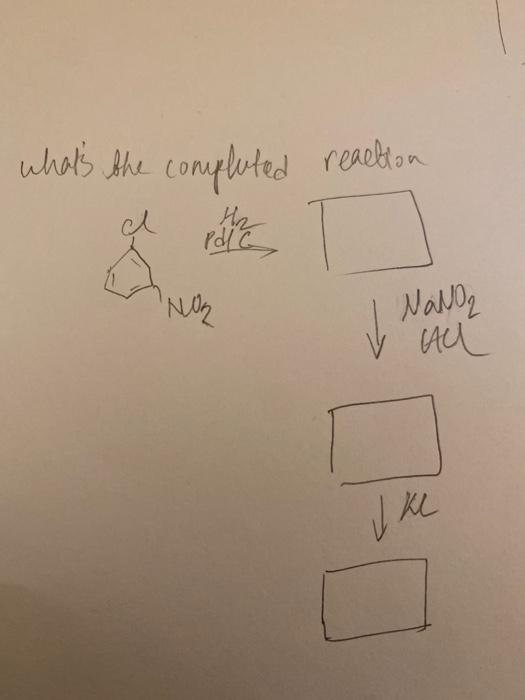 what's the completed reaction
Cl
H2
Pd/C
NO2
NaNO2